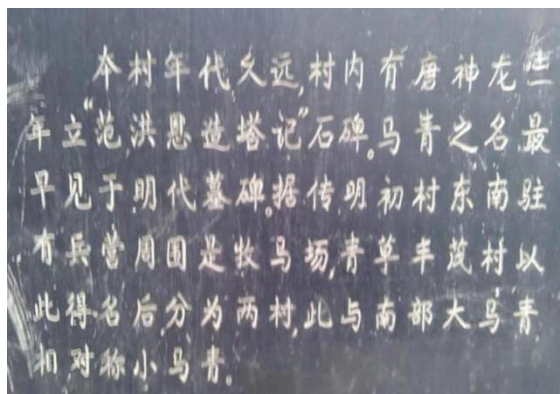 本村年代久远,村内有唐神龙三
年立“范洪恩造塔记”石碑。马青之名,最
早见于明代墓碑。据传明初村东南驻
有兵营周围是牧马场,青草丰茂村以
此得名后,分为两村,此与南部大马青
相对称小马青。